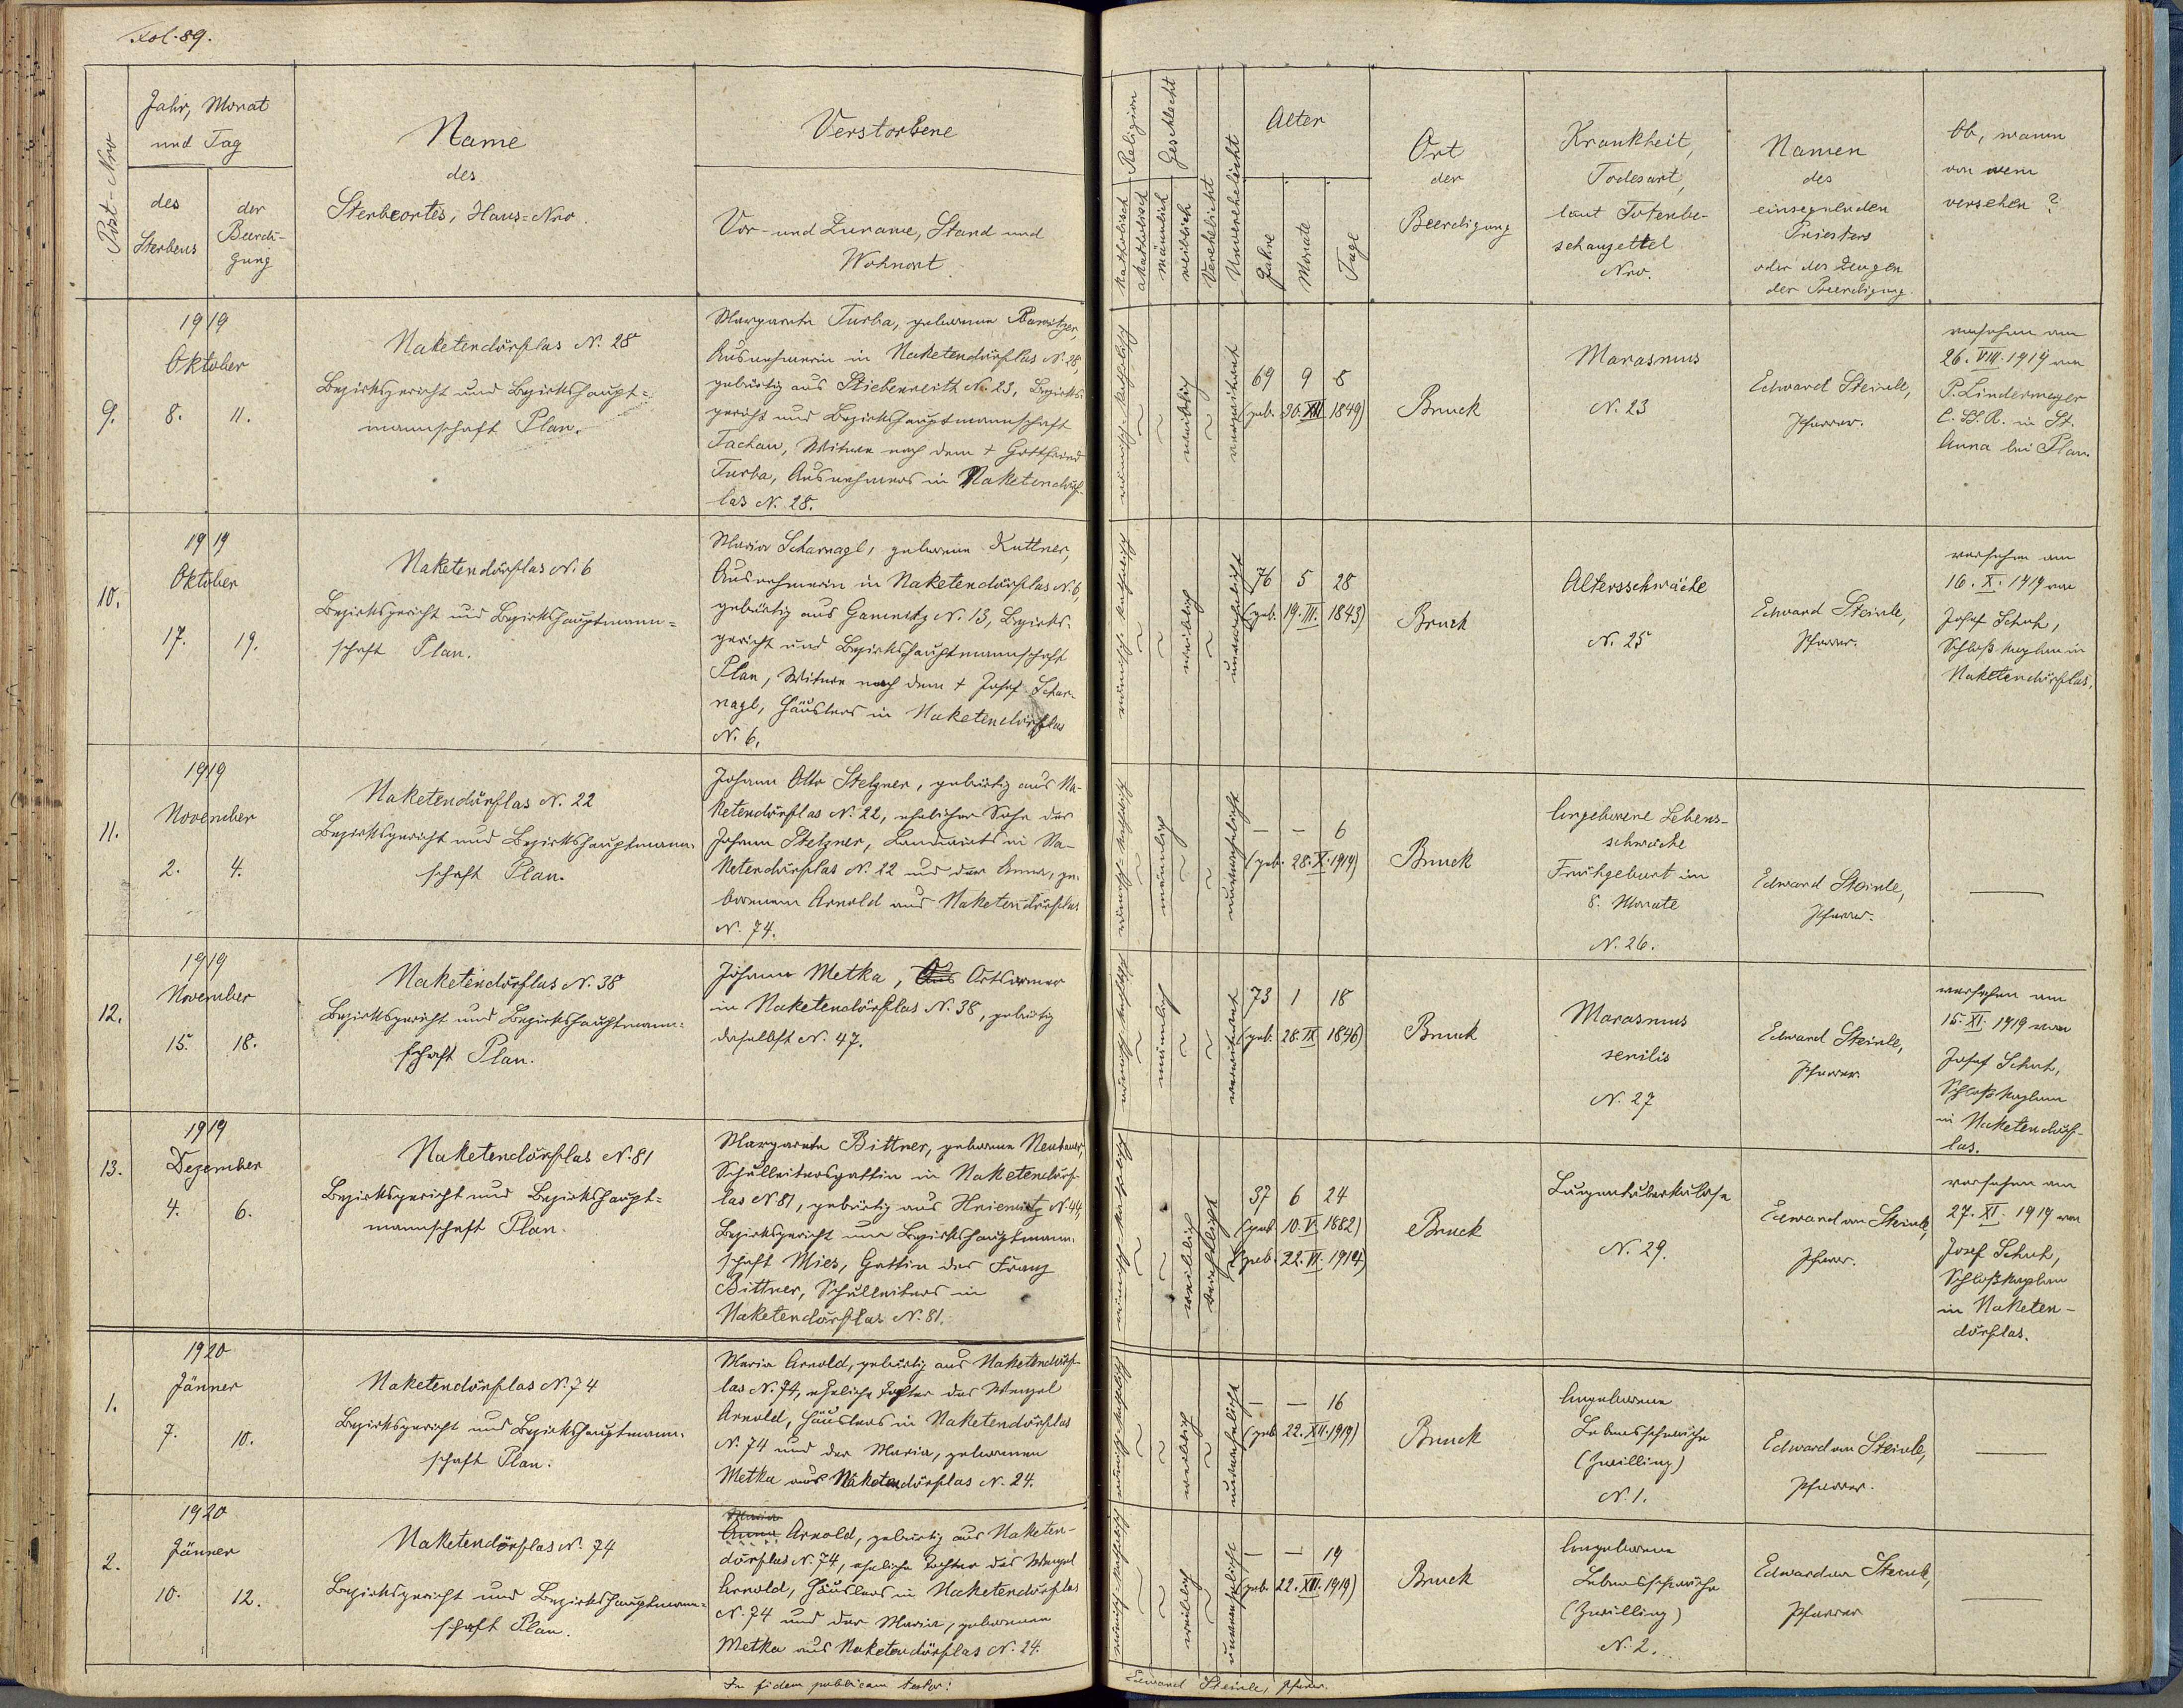 Fol. 89.
Post-Nro
Jahr, Monat
und Tag
des
Sterbens
der
Beerdi-
gung
Name
des
Sterbeortes, Haus-Nro.
Verstorbene
Vor- und Zuname, Stand und
Wohnort.
Religion
katholisch
akatholisch
Geschlecht
männlich
weiblich
Verehelicht
Unverehelicht
Alter
Jahre
Monate
Tage
Ort
der
Beerdigung
Krankheit,
Todesart,
laut Totenbe-
schauzettel
Nro.
Namen
des
einsegnenden
Priesters
oder des Zeugen
der Beerdigung.
Ob, wann
von wem
versehen?
9.
1919
Oktober
8. 11.
Naketendörflas N. 28
Bezirksgericht und Bezirkshaupt=
mannschaft Plan.
Margareta Turba, geborene
Ausnehmerin in Naketendörflas N. 28,
gebürtig aus Stiebenreith N. 23, Bezirks-
gericht und Bezirkshauptmannschaft
Tachau, Witwe nach dem † Gottfried
Turba, Ausnehmers in Naketendörf-
las N. 28.
römisch-katholisch
weiblich
verwitwet
69 9 8
(geb. 30. XII. 1849)
Bruck
Marasmus
N. 23
Edward Steinle,
Pfarrer.
versehen am
26. VIII. 1919 von
P. Lindermeyer
C. SS. R. in St.
Anna bei Plan.
10.
1919
Oktober
17. 19.
Naketendörflas N. 6
Bezirksgericht und Bezirkshauptmann=
schaft Plan.
Maria Scharnagl, geborene Kuttner,
Ausnehmerin in Naketendörflas N. 6,
gebürtig aus Gamnitz N. 13, Bezirks-
gericht und Bezirkshauptmannschaft
Plan, Witwe nach dem † Josef Schar-
nagl, Häuslers in Naketendörflas
N. 6.
römisch-katholisch
weiblich
unverehelicht
76 5 28
(geb. 19. III. 1843)
Bruck
Altersschwäche
N. 25
Edward Steinle,
Pfarrer.
versehen am
16. X. 1919 von
Josef Schuh,
Schloß Kaplan in
Naketendörflas.
11.
1919
November
2. 4.
Naketendörflas N. 22
Bezirksgericht und Bezirkshauptmann-
schaft Plan.
Johann Otto Stelzner, gebürtig aus Na-
ketendörflas N. 22, ehelicher Sohn des
Johann Stelzner, Landwirts in Na-
ketendörflas N. 22 und der Anna, ge-
borenen Arnold aus Naketendörflas
N. 74.
römisch-katholisch
männlich
unverehelicht
— — 6
(geb. 28. X. 1919)
Bruck
Angeborene Lebens-
schwäche
Frühgeburt im
8. Monate
N. 26.
Edward Steinle,
Pfarrer.
—
12.
1919
November
15. 18.
Naketendörflas N. 38
Bezirksgericht und Bezirkshauptmann-
schaft Plan.
Johann Metka, Aus Ortsarmer
in Naketendörflas N. 38, gebürtig
daselbst N. 47.
römisch-katholisch
männlich
verwitwet
73 1 18
(geb. 28. IX. 1846)
Bruck
Marasmus
senilis
N. 27
Edward Steinle,
Pfarrer.
versehen am
15. XI. 1919 von
Josef Schuh,
Schloß Kaplan
in Naketendörf-
las.
13.
1919
Dezember
4. 6.
Naketendörflas N. 81
Bezirksgericht und Bezirkshaupt=
mannschaft Plan.
Margareta Bittner, geborene Neubauer,
Schulleitersgattin in Naketendörf-
las N. 81, gebürtig aus Hniemitz N. 44,
Bezirksgericht und Bezirkshauptmann-
schaft Mies, Gattin des Franz
Bittner, Schulleiters in
Naketendörflas N. 81.
römisch-katholisch
weiblich
verehelicht
37 6 24
(geb. 10. V. 1882)
(geb. 22. VI. 1914)
Bruck
Lungentuberkulose
N. 29.
Edward Steinle,
Pfarrer.
versehen am
27. XI. 1919 von
Josef Schuh,
Schloßkaplan
in Naketen-
dörflas.
1.
1920
Jänner
7. 10.
Naketendörflas N. 74
Bezirksgericht und Bezirkshauptmann-
schaft Plan.
Maria Arnold, gebürtig aus Naketendörf-
las N. 74, eheliche Tochter des Wenzel
Arnold, Häuslers in Naketendörflas
N. 74 und der Maria, geborenen
Metka aus Naketendörflas N. 24.
römisch-katholisch
weiblich
unverehelicht
— — 16
(geb. 22. XII. 1919)
Bruck
Angeborene
Lebensschwäche
(Zwilling)
N. 1.
Edward Steinle,
Pfarrer.
—
2.
1920
Jänner
10. 12.
Naketendörflas N. 74
Bezirksgericht und Bezirkshauptmann-
schaft Plan.
Maria
Anna Arnold, gebürtig aus Naketen-
dörflas N. 74, eheliche Tochter des Wenzel
Arnold, Häuslers in Naketendörflas
N. 74 und der Maria, geborenen
Metka aus Naketendörflas N. 24.
römisch-katholisch
weiblich
unverehelicht
— — 19
(geb. 22. XII. 1919)
Bruck
Angeborene
Lebensschwäche
(Zwilling)
N. 2.
Edward Steinle,
Pfarrer
—
In fidem publicam testor:
Edward Steinle, Pfarrer.